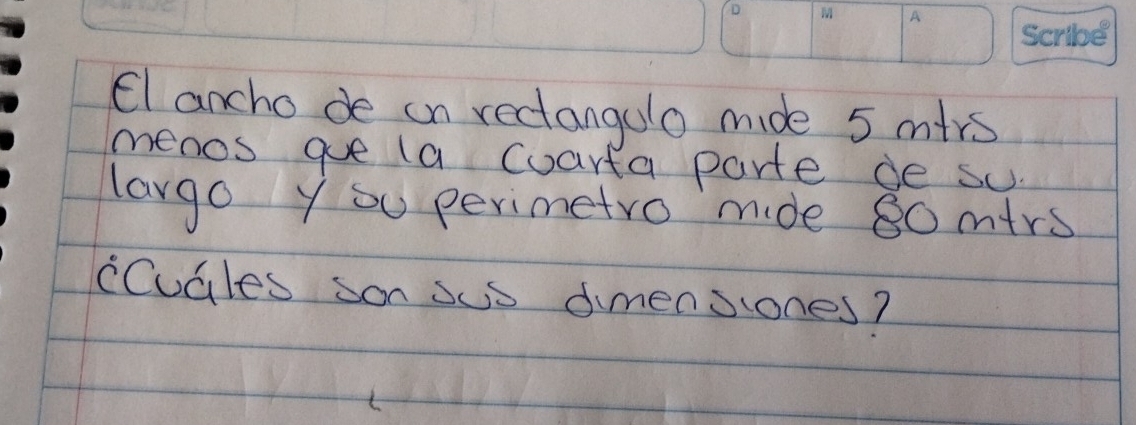 D M A
Scribe®
El ancho de un rectangulo mide 5 mtrs
menos que la cuarta parte de su.
largo y su perimetro mide 80 mtrs
¿Cuáles son sus dimensiones?